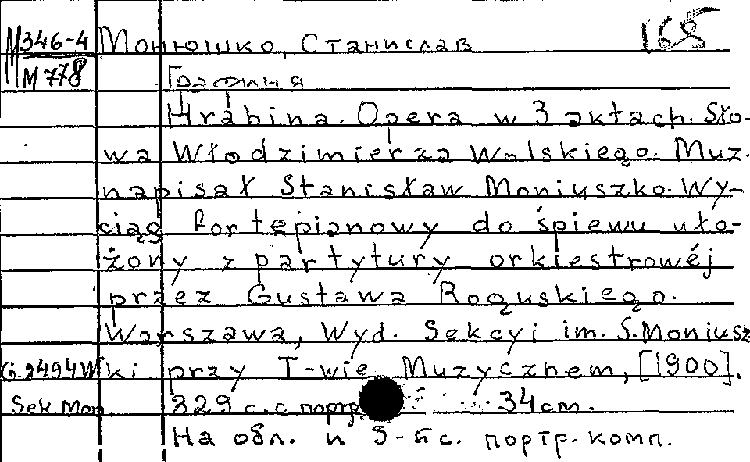 М346-4 Монюшко, Станислав 168
М778 Графиня
Hrabina. Opera w 3 aktach. Sło-
wa Włodzimierza Wolskiego. Muz.
napisał Stanisław Moniuszko. Wy-
ciąg fortepianowy do śpiewu uło-
żony z partytury orkiestrowéj
przez Gustawa Roguskiego.
Warszawa, Wyd. Sekcyi im. S. Moniusz
G.2494W ki przy T-wie Muzycznem, [1900].
Sek Mon. 329 с. с портр. 34 cm.
На обл. и 3-й с. портр. комп.